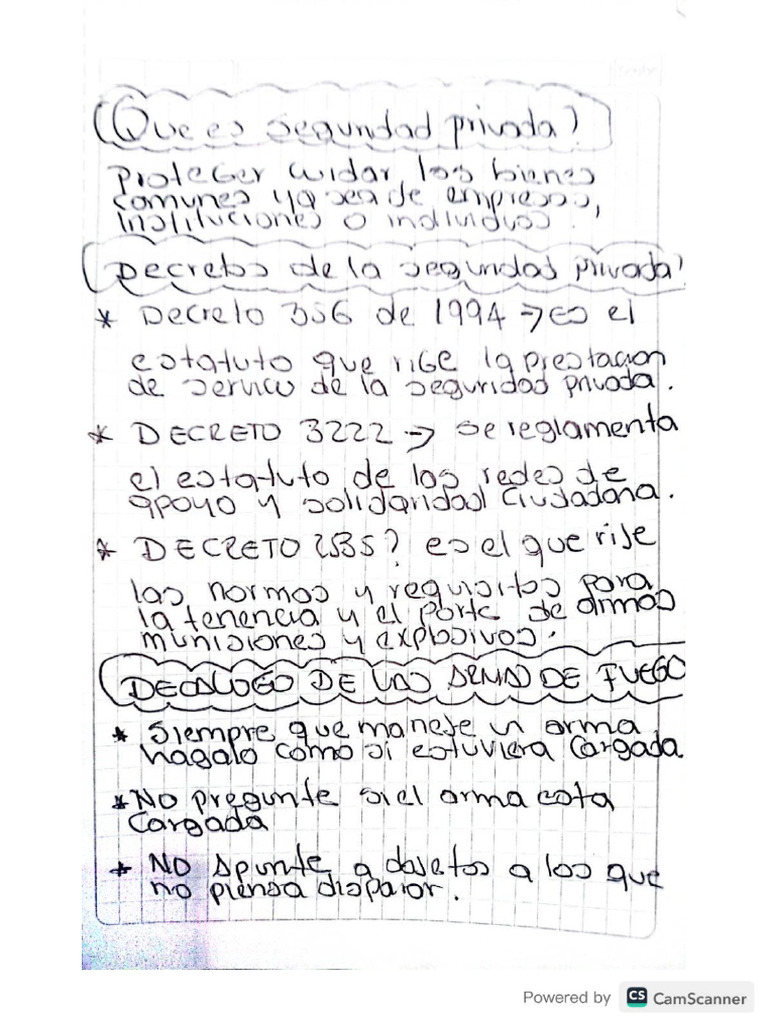 (Que es seguridad privada?
Proteger cuidar los bienes
comunes ya sea de empresas,
Instituciones o individuos.
Decretos de la seguridad privada?
* Decreto 356 de 1994 → es el
estatuto que rige la prestacion
de servicio de la seguridad privada.
* DECRETO 3222 → se reglamenta
el estatuto de las redes de
apoyo y solidaridad Ciudadana.
* DECRETO 2535? es el que rije
las normas y requisitos para
la tenencia y el porte de armas
munisiones y explosivos.
DECALOGO DE LAS ARMAS DE FUEGO
* Siempre que maneje un arma
hagalo como si estuviera Cargada
* NO pregunte si el arma esta
Cargada
* NO Apunte a objetos a los que
no piensa disparar.
Powered by CS CamScanner